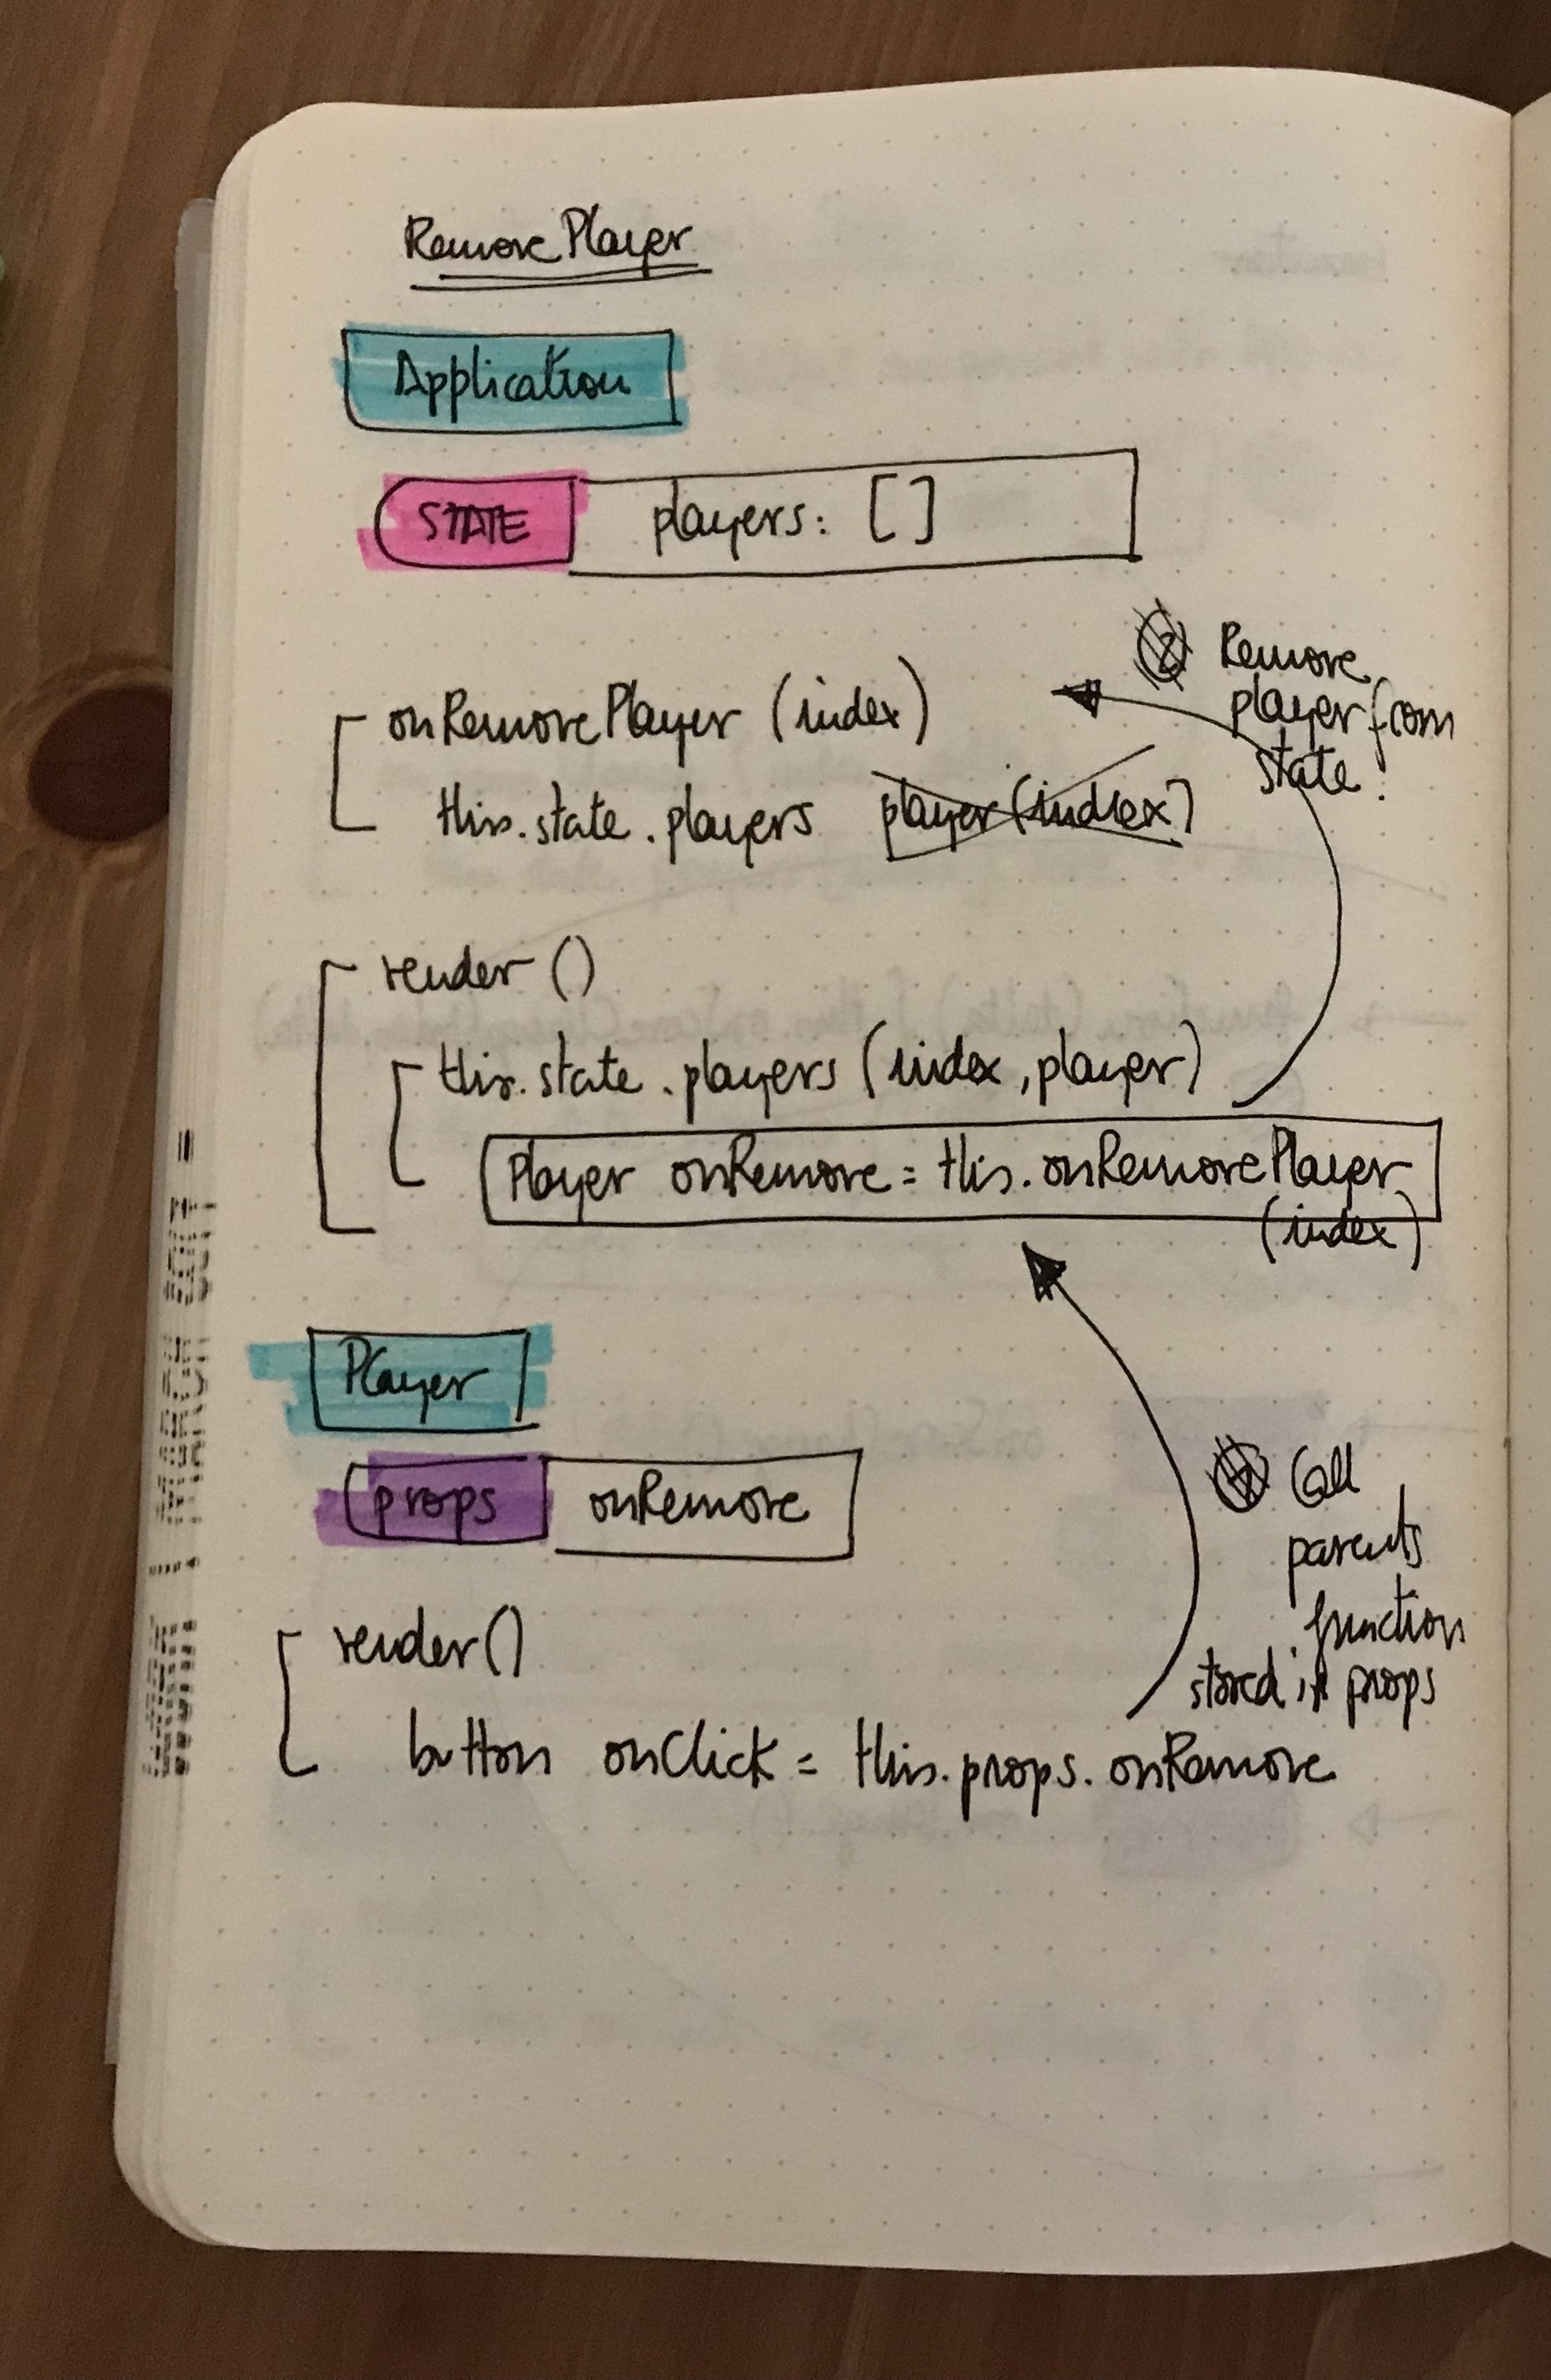 Remove Player
Application
STATE players: []
2 Remove
player from
state!
onRemovePlayer (index)
this.state.players player(index)
render ()
this.state.players (index, player)
Player onRemove = this.onRemovePlayer
(index)
Player
props onRemove
Call
parents
function
stored in props
render()
button onClick = this.props.onRemove